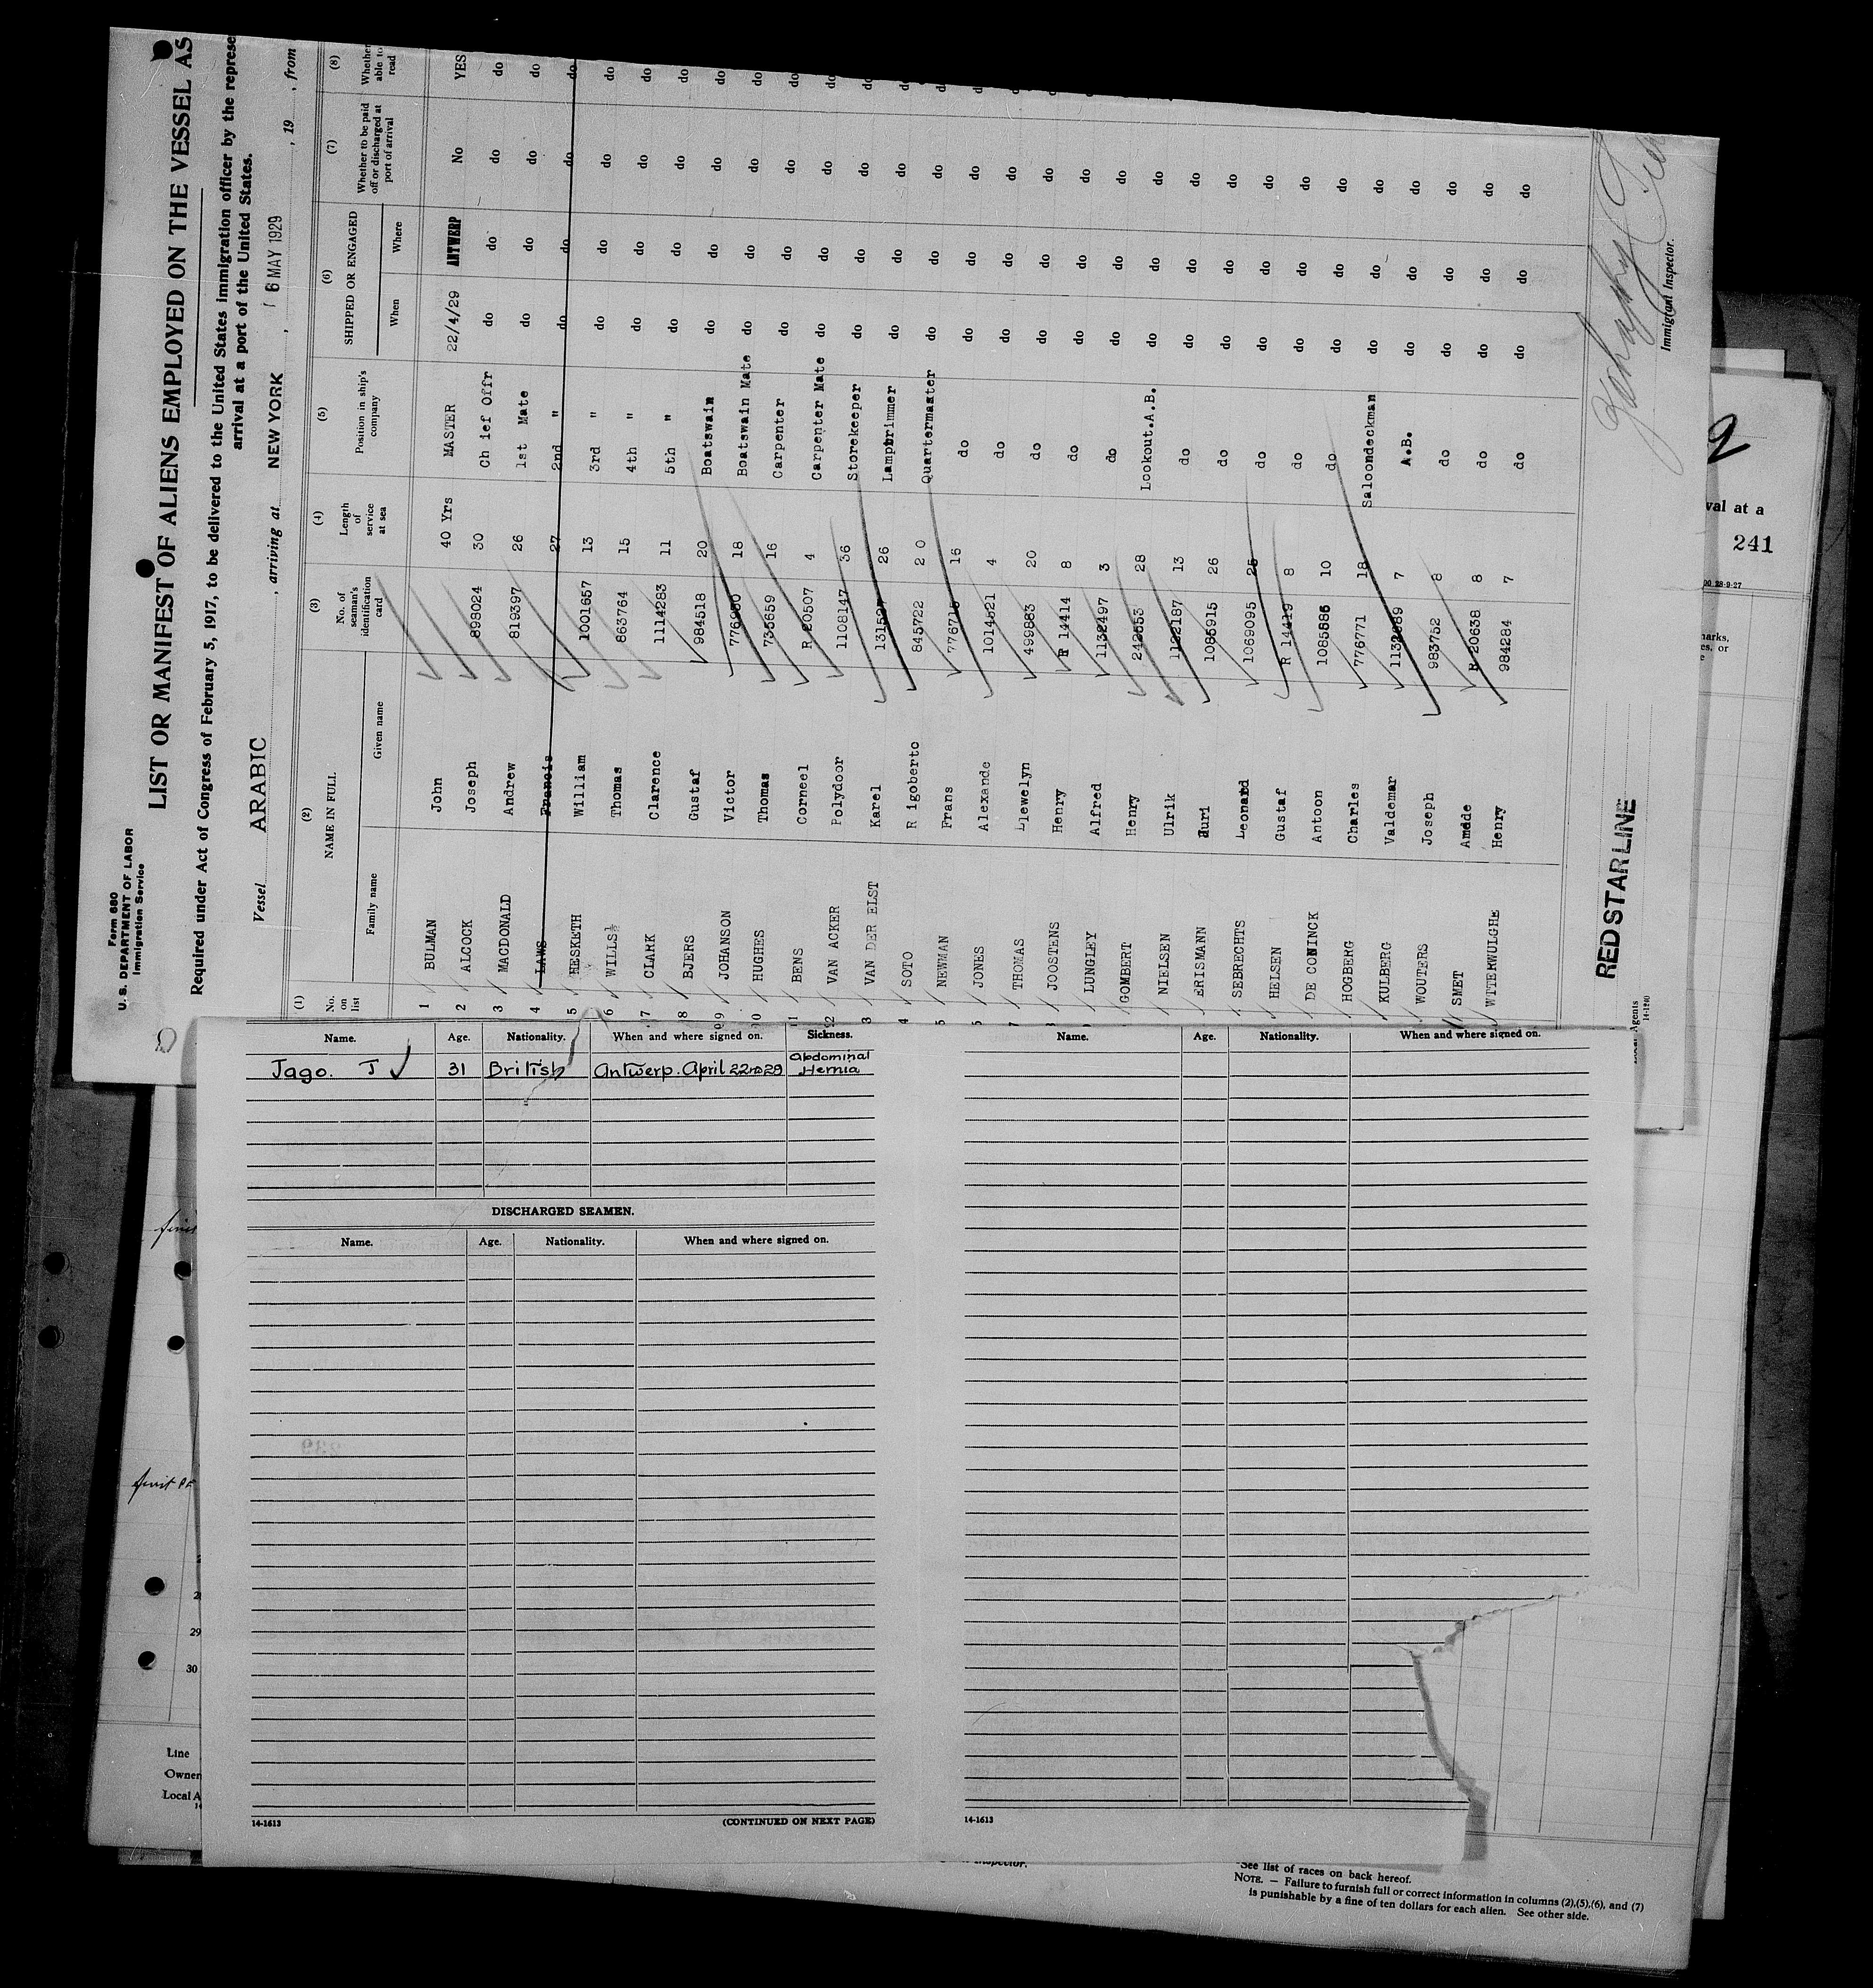 Form 680
U. S. DEPARTMENT OF LABOR
Immigration Service
LIST OR MANIFEST OF ALIENS EMPLOYED ON THE VESSEL AS
Required under Act of Congress of February 5, 1917, to be delivered to the United States immigration officer by the represe
arrival at a port of the United States.
Vessel ARABIC , arriving at NEW YORK , 6 MAY 1929 , 19 , from
(1) (2) (3) (4) (5) (6) (7) (8)
No. on list NAME IN FULL No. of seaman's identification card Length of service at sea Position in ship's company SHIPPED OR ENGAGED Whether to be paid off or discharged at port of arrival Whether able to read
Family name Given name When Where
1 BULMAN John 40 Yrs MASTER 22/4/29 ANTWERP No YES
2 ALCOCK Joseph 898024 30 Ch ief Offr do do do do
3 MACDONALD Andrew 819397 26 1st Mate do do do do
4 LAWS Francis 27 2nd " do do do do
5 HESKETH William 1001657 13 3rd " do do do do
6 WILLS Thomas 863764 15 4th " do do do do
7 CLARK Clarence 1114283 11 5th " do do do do
8 BJERS Gustaf 984518 20 Boatswain do do do do
9 JOHANSON Victor 18 Boatswain Mate do do do do
10 HUGHES Thomas 16 Carpenter do do do do
1 BENS Corneel R 20507 4 Carpenter Mate do do do do
2 VAN ACKER Polydoor 1108147 36 Storekeeper do do do do
3 VAN DER ELST Karel 26 Lamptrimmer do do do do
4 SOTO R igoberto 845722 2 0 Quartermaster do do do do
5 NEWMAN Frans 16 do do do do do
JONES Alexande 1014821 4 do do do do
7 THOMAS Llewelyn 499883 20 do do do do
JOOSTENS Henry R 14414 8 do do do do
LUNGLEY Alfred 1132497 3 do do do do
GOMBERT Henry 242553 28 Lookout.A.B. do do do
NIELSEN Ulrik 1122187 13 do do do do
ERISMANN 1085915 26 do do do do
SEBRECHTS Leonard 1069095 25 do do do do
HEISEN Gustaf R 14419 8 do do do do
DE CONINCK Antoon 1085886 10 do do do do
HOGBERG Charles 776771 18 Saloondeckman do do do
KULBERG Valdemar 7 A.B. do do do
WOUTERS Joseph 983752 8 do do do do
SMET Amede R 20638 8 do do do do
WTTERWULGHE Henry 984284 7 do do do do
RED STAR LINE
Agents
14-1240
Immigrant Inspector.
val at a
241
28-9-27
Name. Age. Nationality. When and where signed on. Sickness.
Jago. J 31 British Antwerp. April 22nd 29 Abdominal Hernia
DISCHARGED SEAMEN.
Name. Age. Nationality. When and where signed on.
14-1613 (CONTINUED ON NEXT PAGE)
Name. Age. Nationality. When and where signed on.
14-1613
29
30
Line
Owner
Local A
See list of races on back hereof.
NOTE. — Failure to furnish full or correct information in columns (2),(5),(6), and (7)
is punishable by a fine of ten dollars for each alien. See other side.